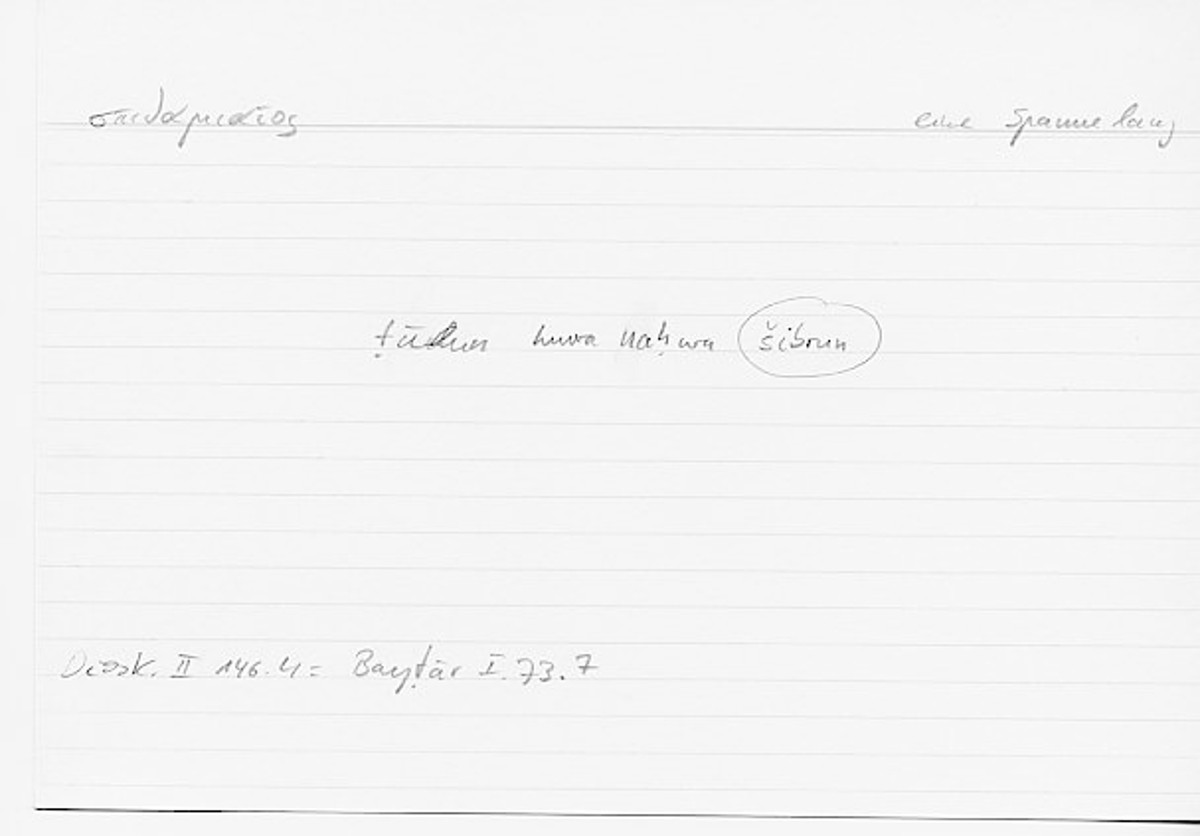 σπιθαμιαῖος eine Spanne lang
ṭūluhu huwa naḥwa šibrun
Diosk. II 146.4 = Bayṭār I. 73.7